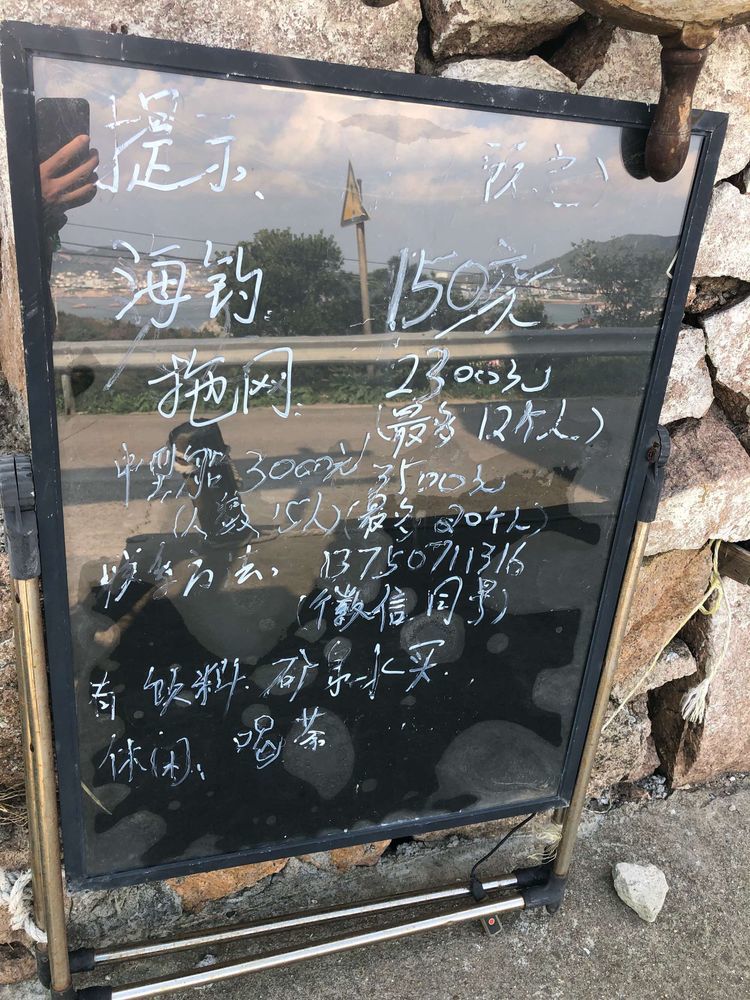 提示、
海钓 150亮
拖网: 2300元
(最多12个人)
中型船 3000元 3500元
(人数15人)(最多20个人)
方法: 13750711316
(微信同号)
有饮料、矿泉水买
休闲、喝茶